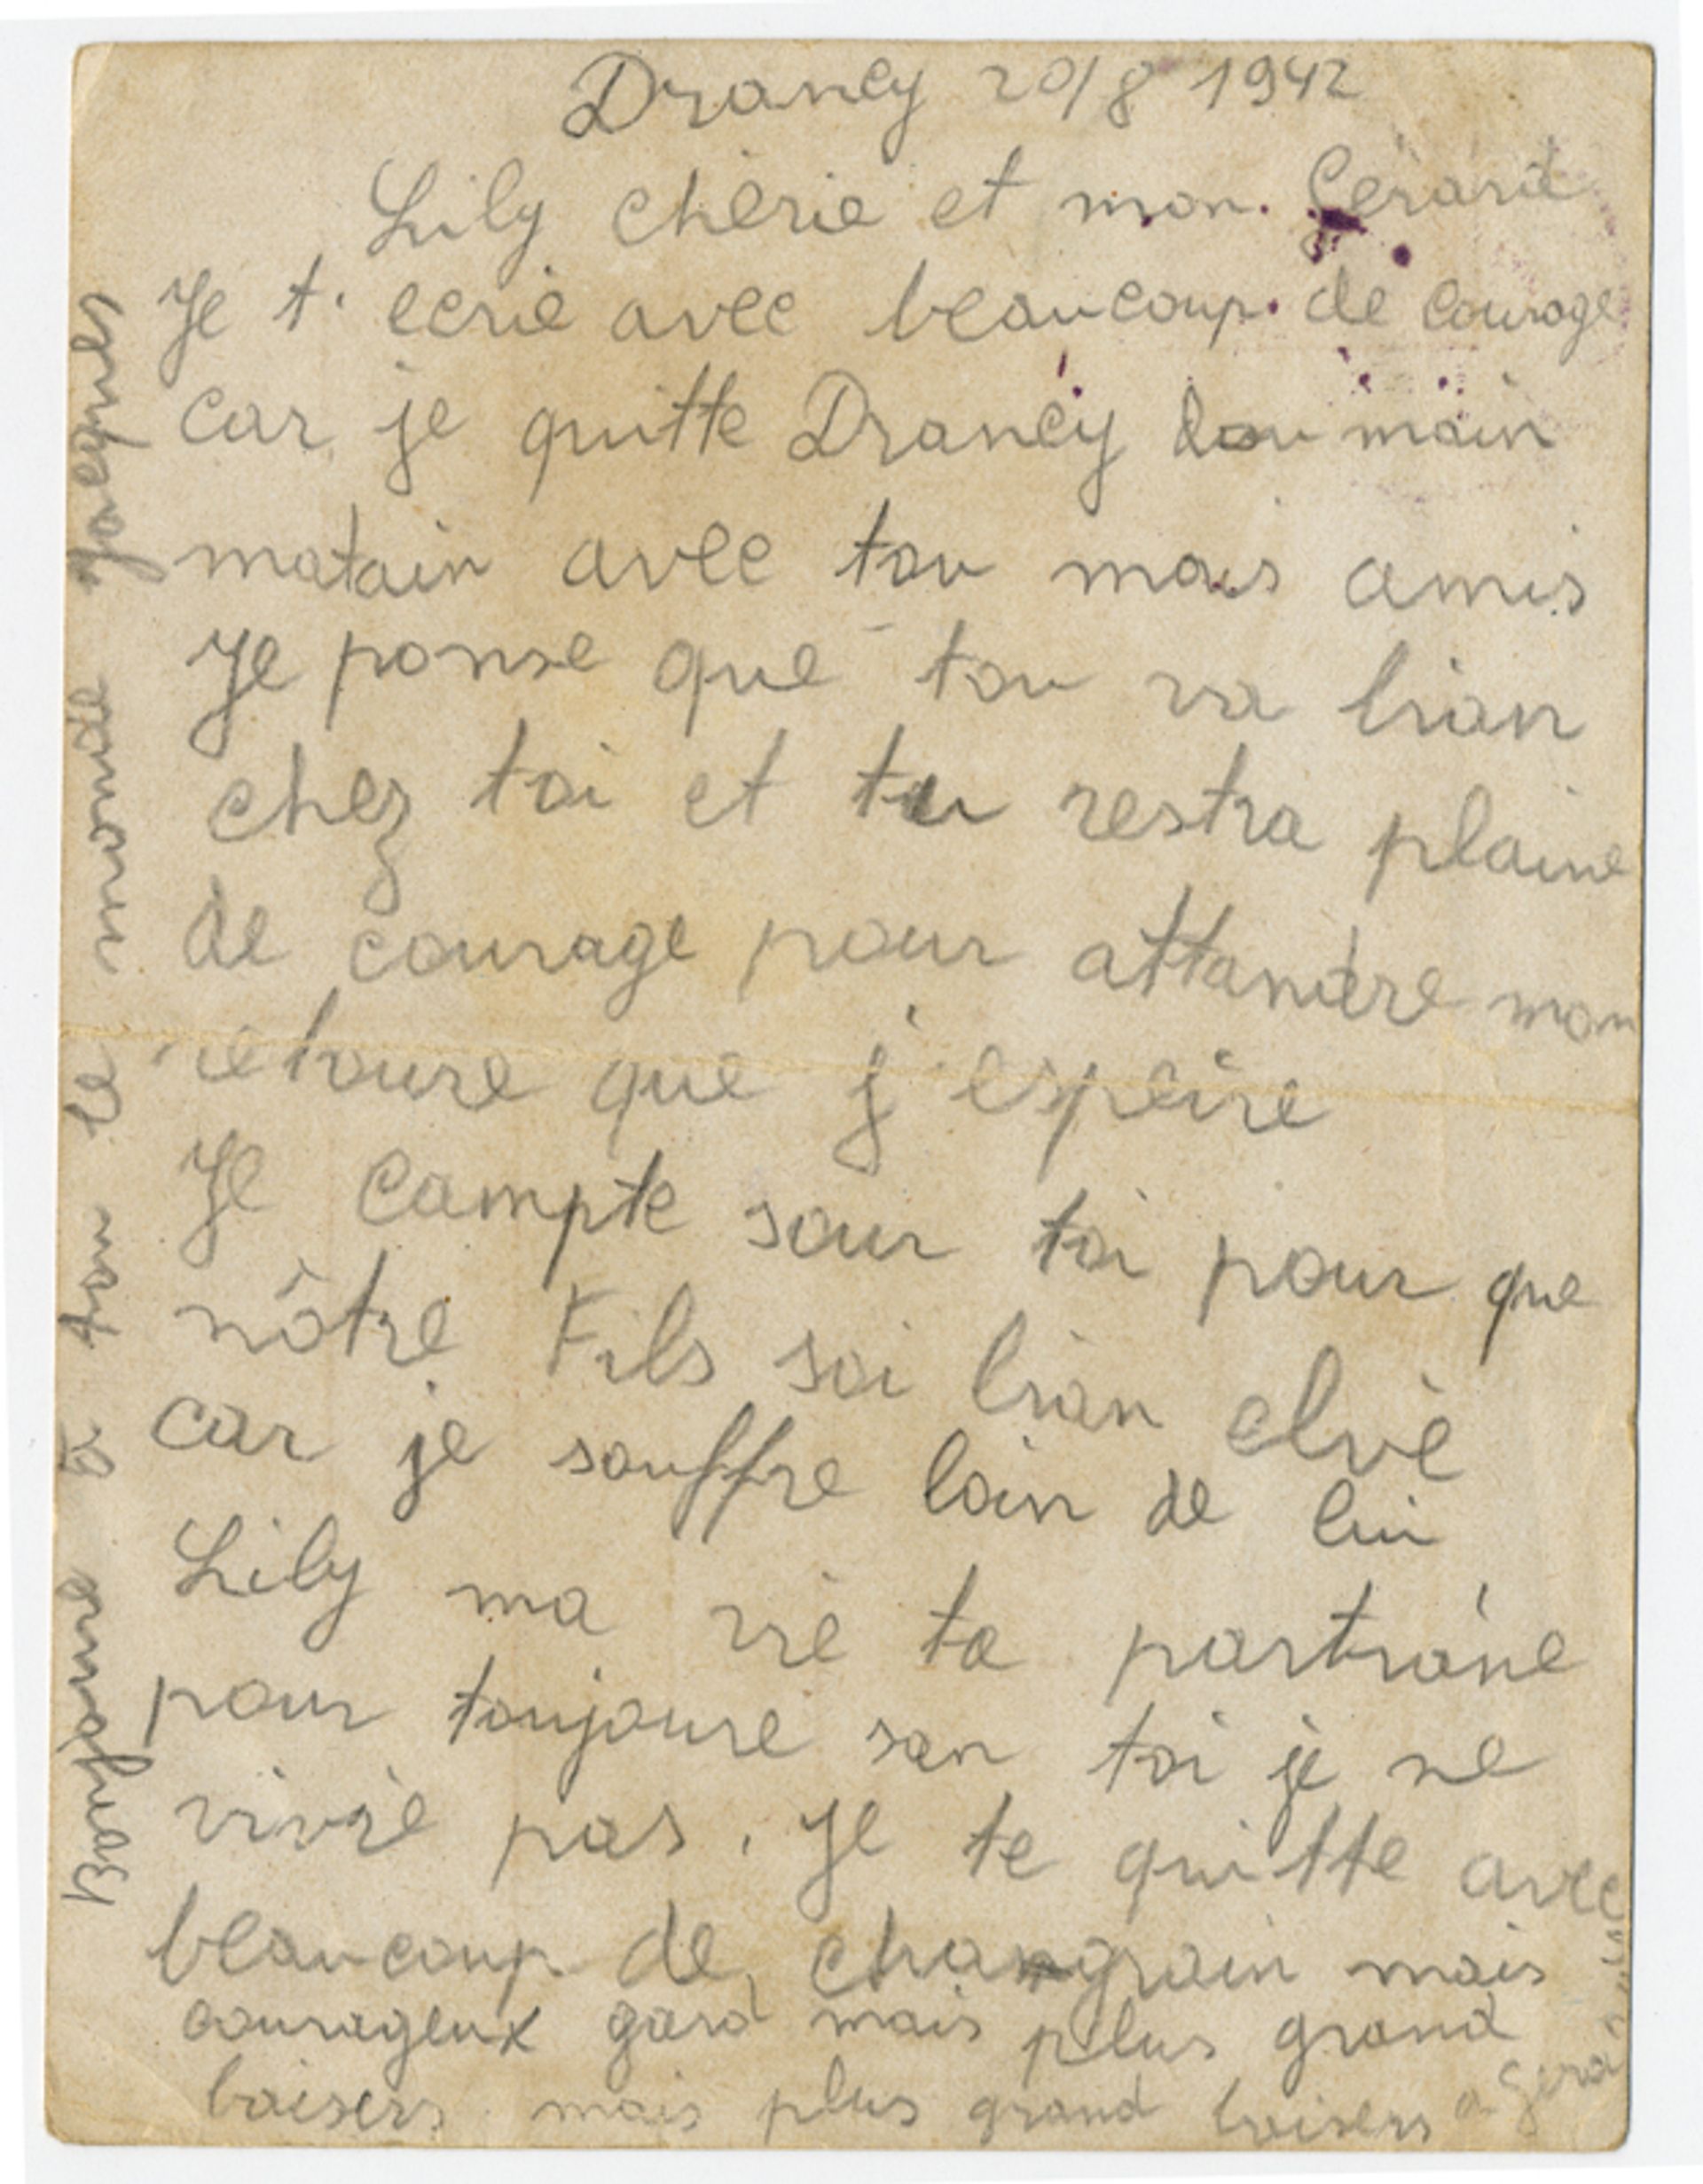 Drancy 20/8 1942
Lily chérie et mon Gérard
Je t'ecrie avec beaucoup de courage
car je quitte Drancy dou main
matain avec tou mais amis
Je ponse que tou va bian
chez toi et tu restra plaine
de courage pour attandre mon
retoure que j'espeire
Je compte sour toi pour que
nôtre Fils soi bian elvè
car je souffre loin de lui
Lily ma vie ta partiáne
pour toujoure san toi je ne
vivré pas. Je te quitte avec
beaucoup de changrain mais
courageux gard mais plus grand
baisers mais plus grand baisers a Gerar
Bonjour a tou le monde Jacques